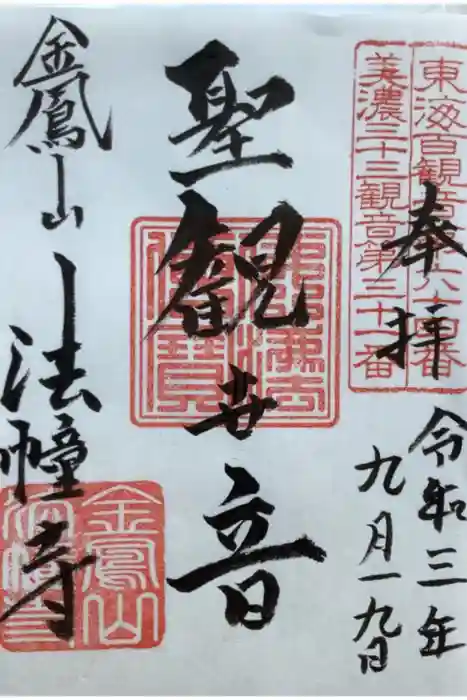 東海百観音第六十四番
美濃三十三観音第三十一番
奉拝
令和三年
九月一九日
聖観世音
佛法僧寶
金鳳山
法幢寺
金鳳山
法幢寺